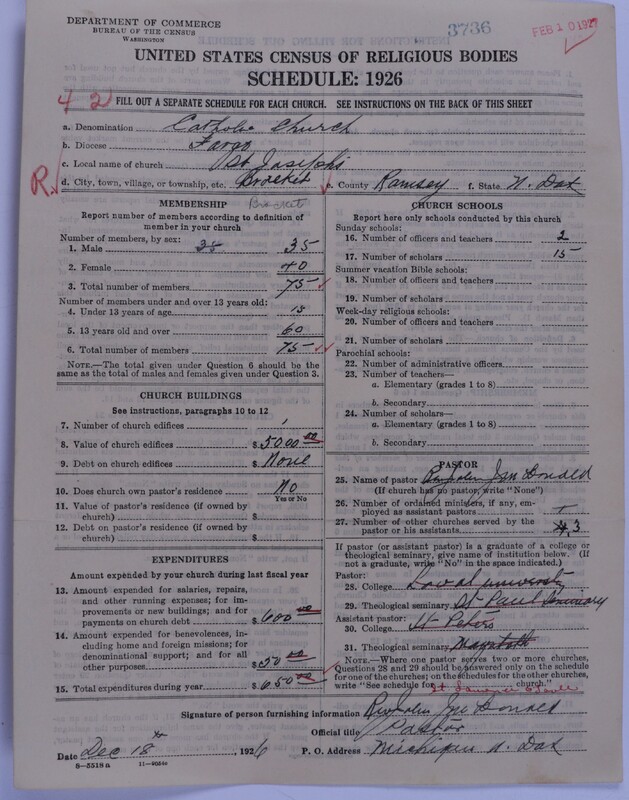 DEPARTMENT OF COMMERCE
BUREAU OF THE CENSUS
WASHINGTON
3736
FEB 10 1927
UNITED STATES CENSUS OF RELIGIOUS BODIES
SCHEDULE: 1926
4 2
FILL OUT A SEPARATE SCHEDULE FOR EACH CHURCH. SEE INSTRUCTIONS ON THE BACK OF THIS SHEET
a. Denomination Catholic Church
b. Diocese Fargo
c. Local name of church St Josephs
R. d. City, town, village, or township, etc. Brocket e. County Ramsey f. State N. Dak
Brocket
MEMBERSHIP
Report number of members according to definition of
member in your church
Number of members, by sex:
1. Male 35 35
2. Female 40
3. Total number of members 75
Number of members under and over 13 years old:
4. Under 13 years of age 15
5. 13 years old and over 60
6. Total number of members 75
NOTE.—The total given under Question 6 should be
same as the total of males and females given under Question 3.
CHURCH BUILDINGS
See instructions, paragraphs 10 to 12
7. Number of church edifices 1
8. Value of church edifices $5000.00
9. Debt on church edifices $ None
10. Does church own pastor's residence No
Yes or No
11. Value of pastor's residence (if owned by
church) $
12. Debt on pastor's residence (if owned by
church) $
EXPENDITURES
Amount expended by your church during last fiscal year
13. Amount expended for salaries, repairs,
and other running expenses; for im-
provements or new buildings; and for
payments on church debt $ 600.00
14. Amount expended for benevolences,
including home and foreign missions; for
denominational support; and for all
other purposes $50.00
15. Total expenditures during year $650.00
CHURCH SCHOOLS
Report here only schools conducted by this church
Sunday schools:
16. Number of officers and teachers 2
17. Number of scholars 15
Summer vacation Bible schools:
18. Number of officers and teachers
19. Number of scholars
Week-day religious schools:
20. Number of officers and teachers
21. Number of scholars
Parochial schools:
22. Number of administrative officers
23. Number of teachers—
a. Elementary (grades 1 to 8)
b. Secondary
24. Number of scholars—
a. Elementary (grades 1 to 8)
b. Secondary
PASTOR
25. Name of pastor Rev John
(If church has no pastor, write "None")
26. Number of ordained ministers, if any, em-
ployed as assistant pastors
27. Number of other churches served by the
pastor or his assistants 3
If pastor (or assistant pastor) is a graduate of a college or
theological seminary, give name of institution below. (If
not a graduate, write "No" in the space indicated.)
Pastor:
28. College Laval University
29. Theological seminary St Paul Seminary
Assistant pastor:
30. College St Peters
31. Theological seminary
NOTE.—Where one pastor serves two or more churches,
Questions 28 and 29 should be answered only on the schedule
for one of the churches; on the schedules for the other churches,
write "See schedule for church."
Signature of person furnishing information Rev John
Official title Pastor
Date Dec 18 1926 P. O. Address Michigan N. Dak
8—5518a 11—90540